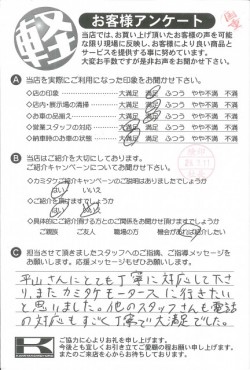 軽
お客様アンケート
当店では、お買い上げ頂いたお客様の声を可能
な限り現場に反映し、お客様により良い商品と
サービスを提供する事に努めています。
大変お手数ですが是非お声をお聞かせ下さい。
A 当店を実際にご利用になった印象をお聞かせ下さい。
◇店の印象 大満足 満足 ふつう やや不満 不満
◇店内・展示場の清掃 大満足 満足 ふつう やや不満 不満
◇お車の品揃え 大満足 満足 ふつう やや不満 不満
◇営業スタッフの対応 大満足 満足 ふつう やや不満 不満
◇納車時のお車の状態 大満足 満足 ふつう やや不満 不満
B 当店はご紹介を大切にしております。
ご紹介キャンペーンについてお聞かせ下さい。
◇カミタケご紹介キャンペーンのご説明はありましたでしょうか
はい いいえ
◇ご紹介を頂けますでしょうか
はい いいえ
◇具体的にご紹介頂ける方とのご関係をお聞かせ頂けますでしょうか
ご親族 ご友人 職場の方 機会があれば紹介したい
C 担当させて頂きましたスタッフへのご指摘、ご指導メッセージを
お願いします。応援メッセージもぜひお願いします。
平山さんにとても丁寧に対応して下さ
り、またカミタケモータースに行きたい
と思いました。他のスタッフさんも電話
の対応もすごく丁寧で大満足でした。
ご協力に心よりお礼を申し上げます。
今後とも宜しくお引き立てご愛顧の程お願い申し上げます。
またのご来店を心からお待ちしております。